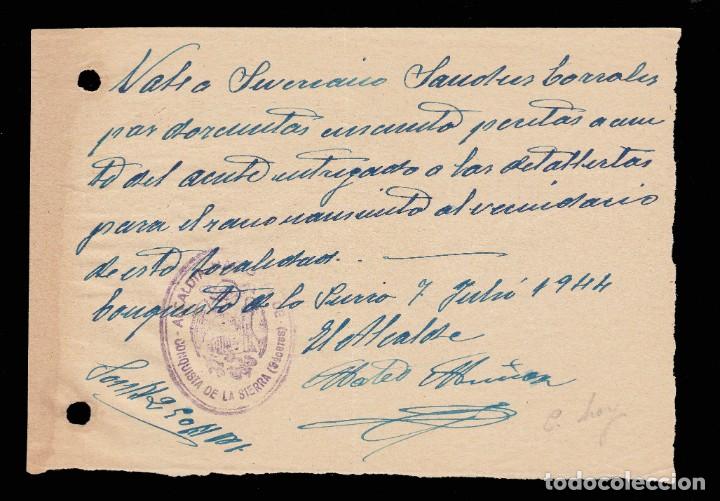 Vale a Severiano Sanches Corrales
por dorcientas cincuenta pesetas a cuen
ta del aceite entregado a los detallistas
para el racionamiento al vecindario
de esta localidad.
Conquista de la Sierra 7 Julio 1944
El Alcalde
Mateo
ALCALDIA DE
CONQUISTA DE LA SIERRA (Cáceres)
todocoleccion.net